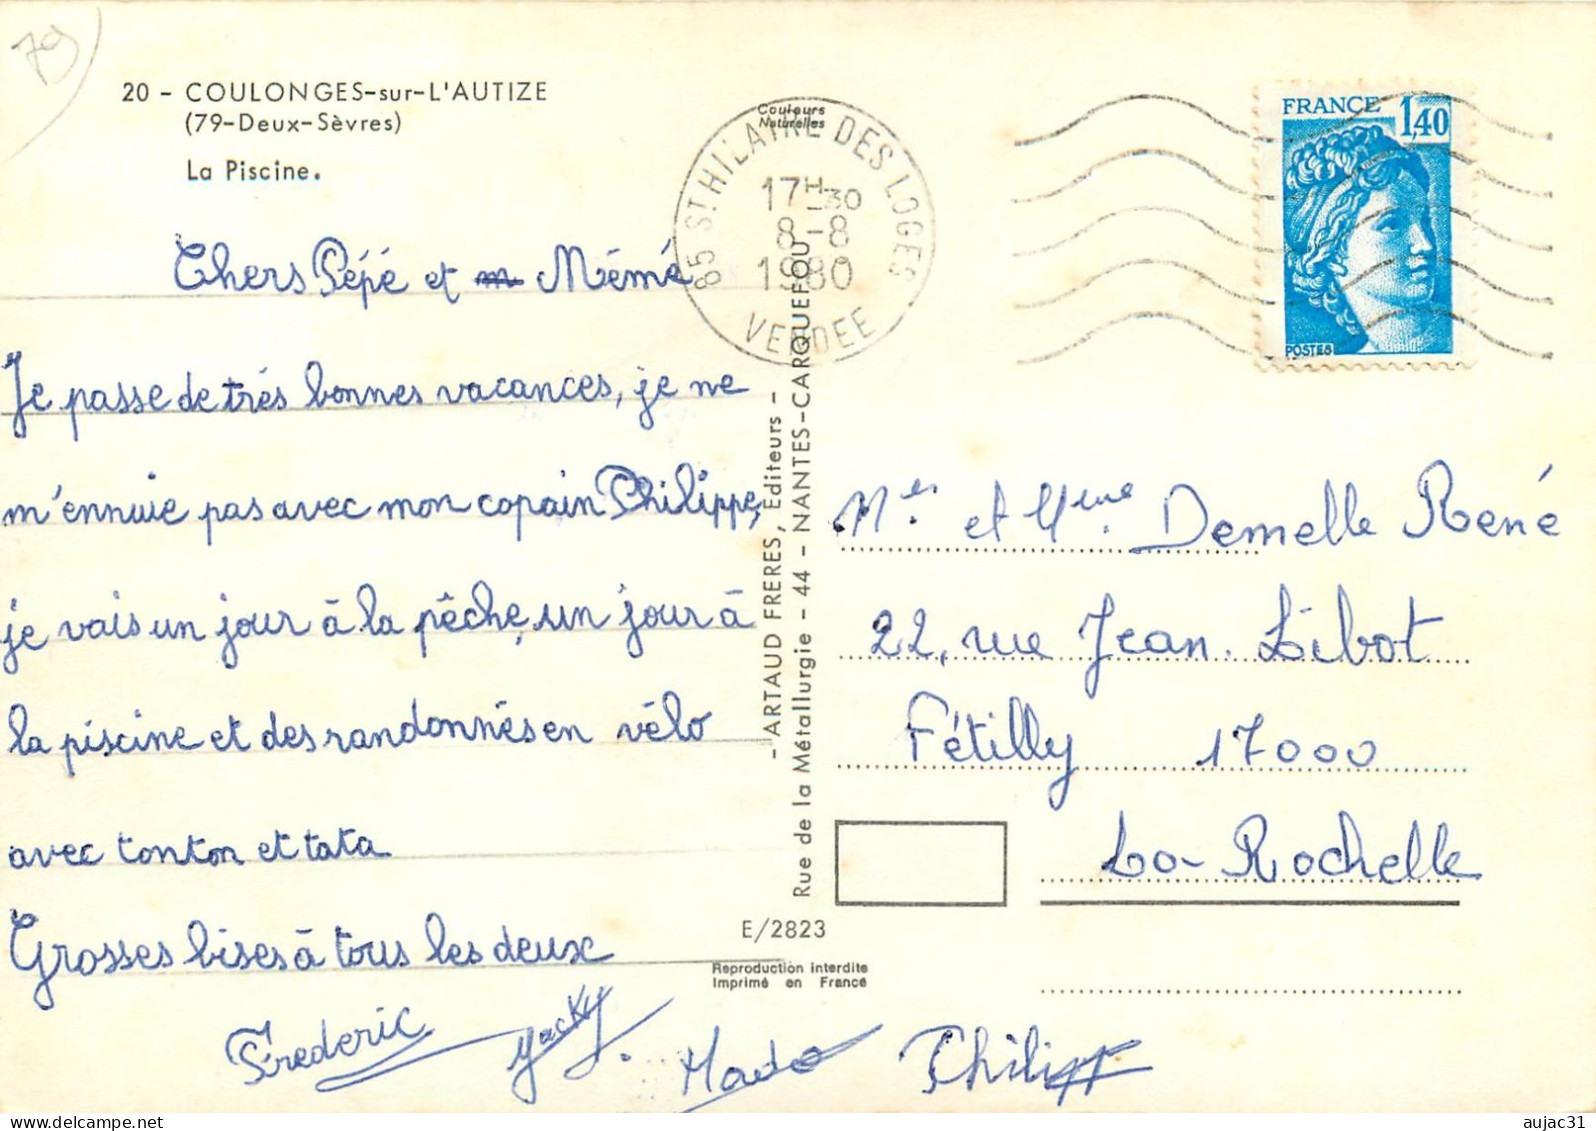 79
20 - COULONGES-sur-L'AUTIZE
(79-Deux-Sèvres)
La Piscine.
Couleurs
Naturelles
85 ST HILAIRE DES LOGES
17H-30
8-8
1980
VENDEE
FRANCE
1,40
POSTES
Chers Pépé et m Mémé
Je passe de trés bonnes vacances, je ne
m'ennuie pas avec mon copain Philippe,
je vais un jour à la pêche, un jour à
la piscine et des randonnés en vélo
avec tonton et tata
Grosses bises à tous les deux
Frederic
Jacky.
Mado
Philipp
- ARTAUD FRERES, Editeurs -
Rue de la Métallurgie - 44 - NANTES-CARQUEFOU
E/2823
Reproduction interdite
Imprimé en France
Mr. et Mme Demelle René
22, rue Jean. Libot
Fétilly 17000
La-Rochelle
delcampe.net
aujac31